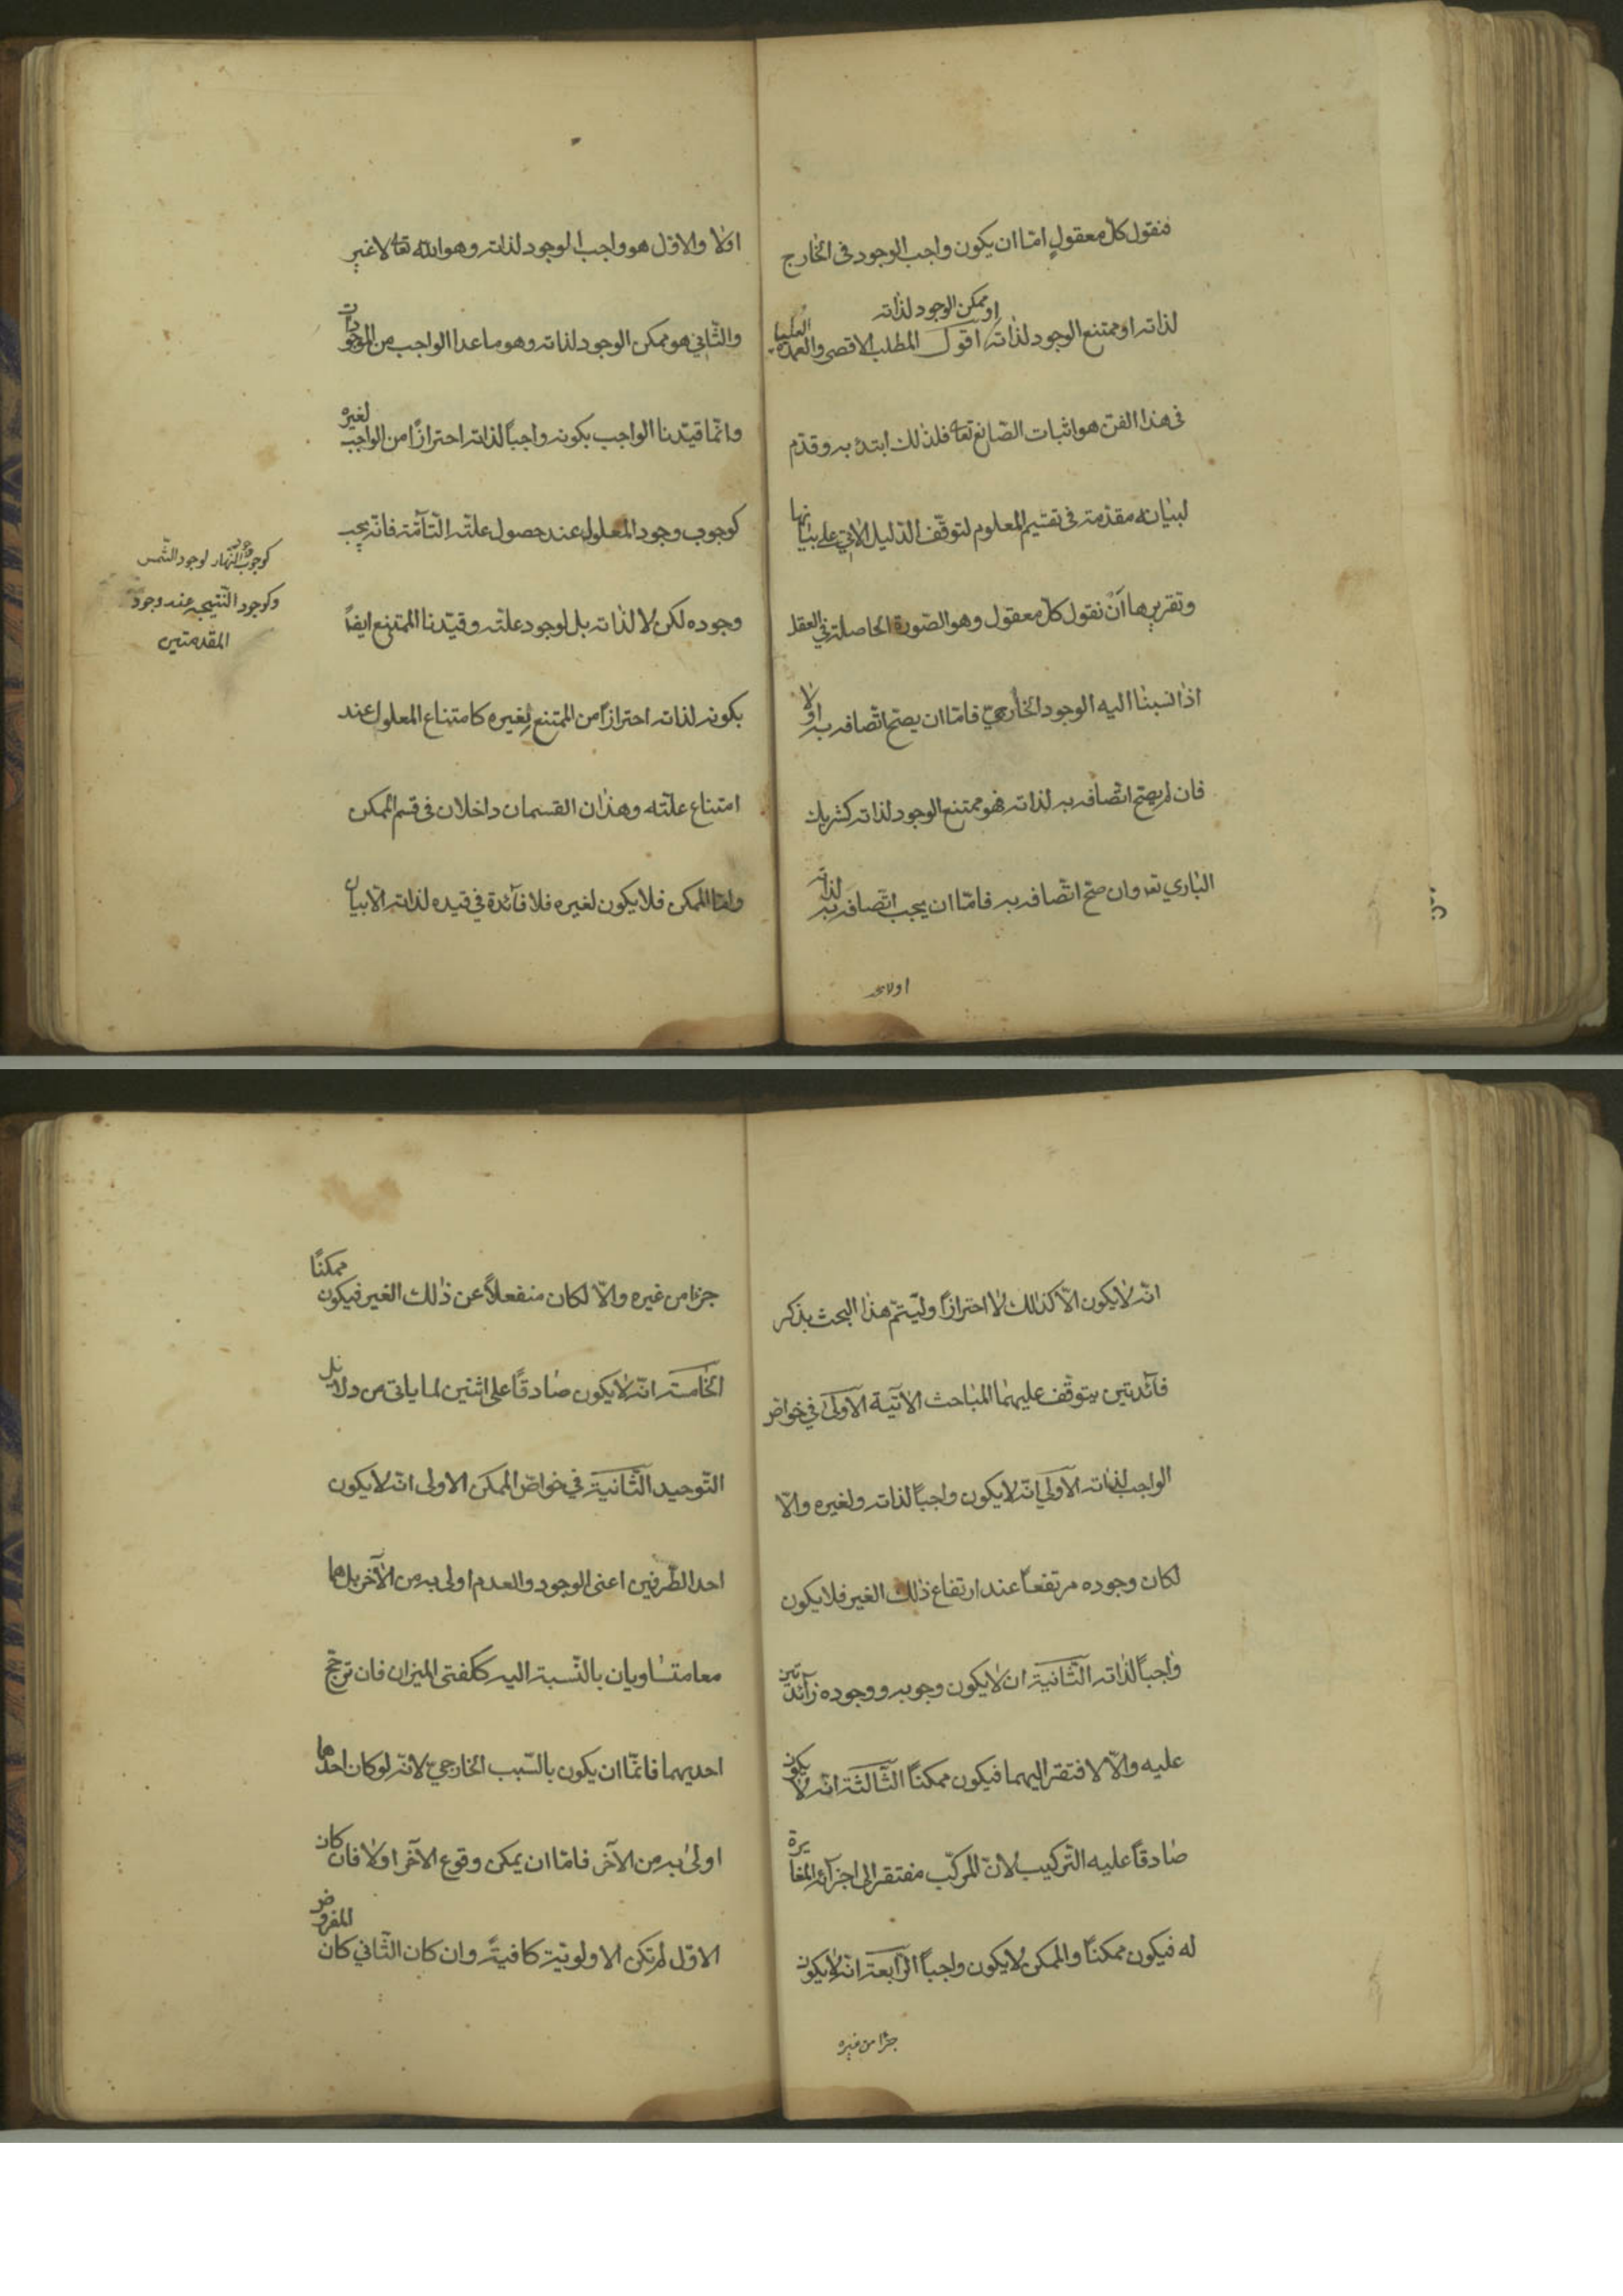 فنقول كلّ معقولٍ امّا ان يكون واجب الوجود فى الخارج
او ممكن الوجود لذاته
لذاته او ممتنع الوجود لذاته اقول المطلب الاقصى والعمدة العليا
فى هذا الفن هو اثبات الصّانع تعا فلذلك ابتدء به وقدّم
لبيانه مقدّمة فى تقسيم المعلوم لتوقّف الدّليل الاتى على بيانها
وتقريرها اَنْ نقول كلّ معقول وهو الصّورة الحاصلة فى العقل
اذا نسبنا اليه الوجود الخارجىّ فامّا ان يصحّ اتّصافه به اولا
فان لم يصحّ اتّصافه به لذاته فهو ممتنع الوجود لذاته كشريك
البارى تعـ وان صحّ اتّصافه به فامّا ان يجب اتّصافه به لذاته
اولا والاوّل هو واجب الوجود لذاته وهو الله تعا لا غير
والثّانى هو ممكن الوجود لذاته وهو ما عدا الواجب من الموجودات
وانّما قيّدنا الواجب بكونه واجباً لذاته احترازاً من الواجب لغيره
كوجوب وجود المعلول عند حصول علّته التّآمّة فانّه يجب
وجوده لكن لا لذاته بل لوجود علّته وقيّدنا الممتنع ايضاً
بكونه لذاته احترازاً من الممتنع لغيره كامتناع المعلول عند
امتناع علّته وهذان القسمان داخلان فى قسم الممكن
وامّا الممكن فلا يكون لغيره فلا فآئدة فى قيده لذاته الّا بيان
كوجوب وجود النّهار لوجود الشّمس
وكوجود النّتيجه عند وجود
المقدمتين
انّه لا يكون الّا كذلك لا احترازاً وليتمّ هذا البحث بذكر
فآئدتين يتوقّف عليهما المباحث الآتية الاولى فى خواصّ
الواجب لذاته الاولى انّه لا يكون واجباً لذاته ولغيره والّا
لكان وجوده مرتفعاً عند ارتفاع ذلك الغير فلا يكون
واجباً لذاته الثّانية ان لا يكون وجوبه ووجوده زآئدتين
عليه والّا لافتقر اليهما فيكون ممكناً الثّالثة انّه لا يكون
صادقاً عليه التّركيب لانّ المركّب مفتقر الى اجزآئه المغايرة
له فيكون ممكناً والممكن لا يكون واجباً الرّابعة انّه لا يكون
جزا من غيره
جزا من غيره والّا لكان منفعلاً عن ذلك الغير فيكون ممكنًا
الخامسة انّه لا يكون صادقاً على اثنين لما ياتى من دلايل
التّوحيد الثّانية فى خواصّ الممكن الاولى انّه لا يكون
احد الطّرفين اعنى الوجود والعدم اولى به من الآخر بل هما
معا متساويان بالنّسبة اليه ككفتى الميزان فان ترجّح
احديهما فانّما ان يكون بالسّبب الخارجىّ لانّه لو كان احدهما
اولى به من الآخر فامّا ان يمكن وقوع الآخر اولا فان كان
الاوّل لم تكن الاولويّة كافيةً وان كان الثّانى كان المفروض